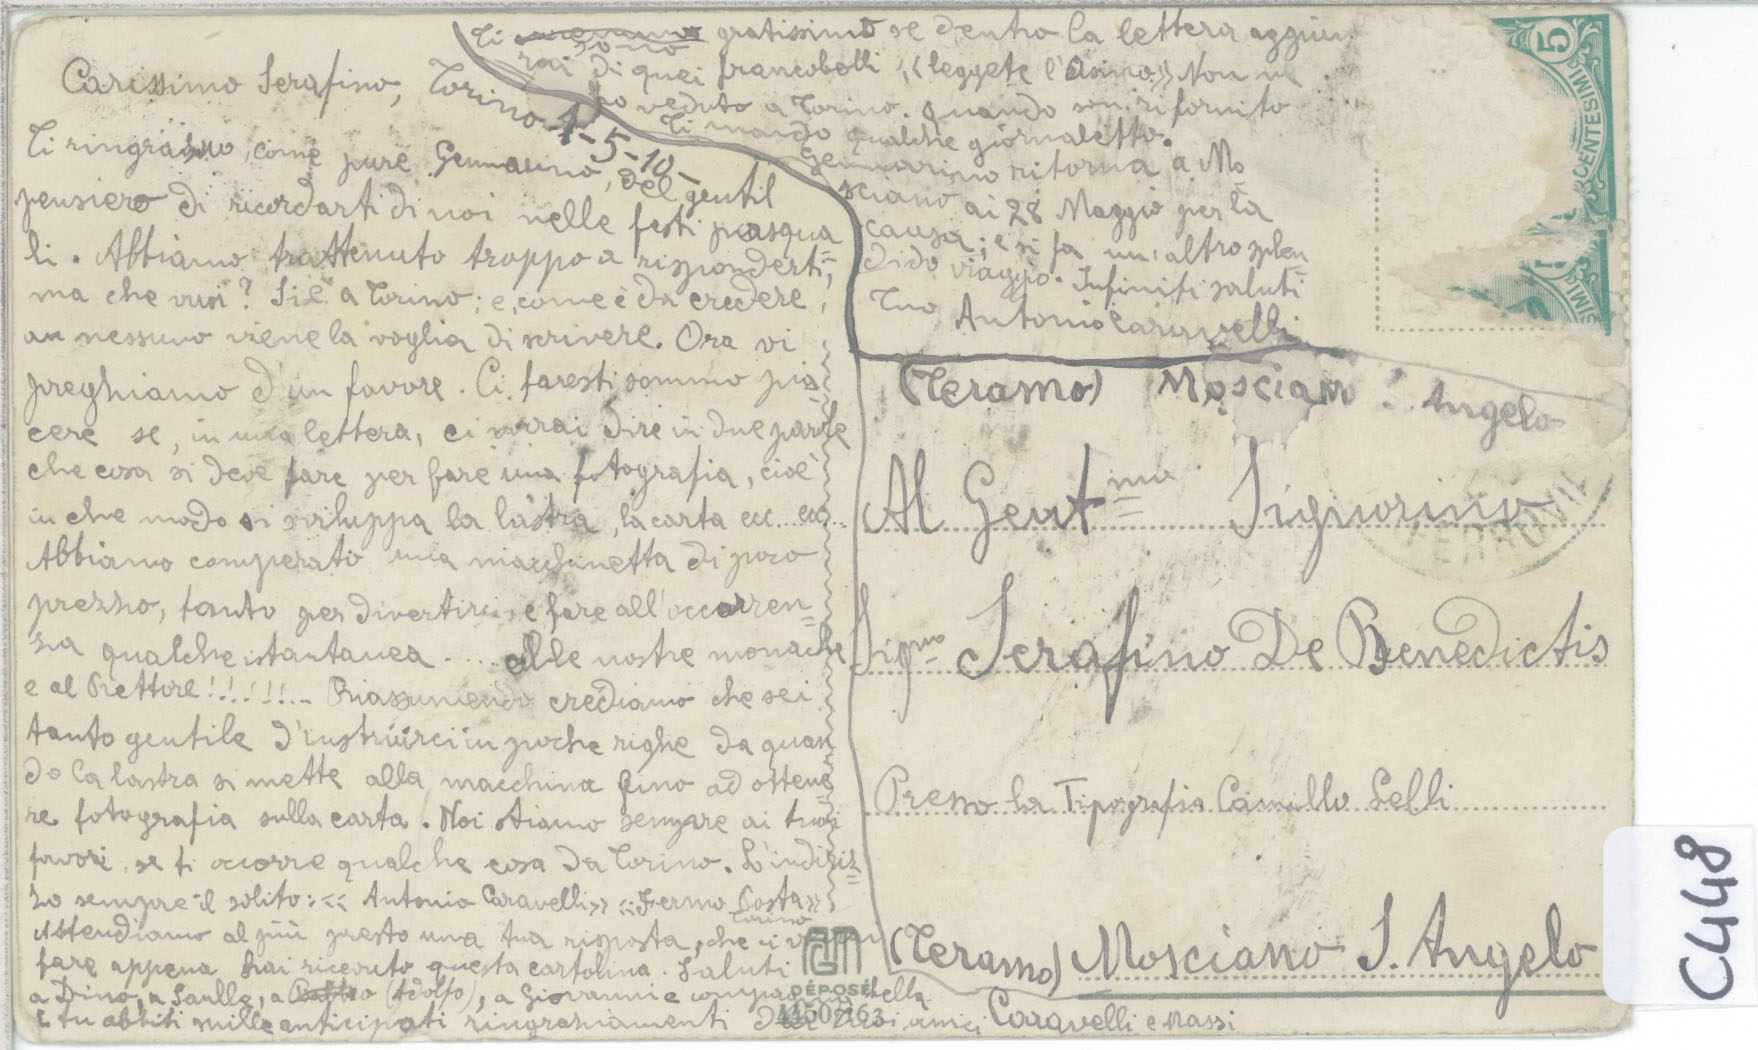 Carissimo Serafino, Torino 1-5-10-
Ti ringrazio, come pure Gennarino, del gentil
pensiero di ricordarti di noi nelle festi pasqua
li. Abbiamo trattenuto troppo a risponderti,
ma che vuoi? Si è a Torino; e, come è da credere,
a nessuno viene la voglia di scrivere. Ora vi
preghiamo d'un favore. Ci faresti sommo pia
cere se, in una lettera, ci vorrai dire in due parole
che cosa si deve fare per fare una fotografia, cioè
in che modo si sviluppa la lastra, la carta ecc... ecc...
Abbiamo comperato una macchinetta di poco
prezzo, tanto per divertirci, e fare all'occorren=
za qualche istantanea..... alle nostre monache
e al Rettore!!!!!!... Riassumendo crediamo che sei
tanto gentile d'instruirci in poche righe da quan
do la lastra si mette alla macchina fino ad ottene
re fotografia sulla carta. Noi stiamo sempre ai tuoi
favori, se ti ocorre qualche cosa da Torino. L'indiriz=
zo sempre il solito: «Antonio Caravelli» «Fermo Posta»
Torino
Attendiamo al più presto una tua risposta, che ci
fare appena hai ricevuto questa cartolina. Saluti
a Dino, a Saulle, a (Adolfo), a Giovanni e
e tu abbiti mille anticipati ringraziamenti dai tuoi amici Caravelli e Massi
Ti sono gratissimo se dentro la lettera aggiun
rai di quei francobolli «leggete l'Asino» Non ne
ho veduto a Torino. Quando son rifornito
Ti mando qualche giornaletto.
Gennarino ritorna a Mo
sciano ai 28 Maggio per la
causa; e si fa un'altro splen
dido viaggio. Infiniti saluti
Tuo Antonio Caravelli
(Teramo) Mosciano S. Angelo
Al Gent.mo Signorino
Sig.no Serafino De Benedictis
Presso la Tipografia Camillo Lelli
(Teramo) Mosciano S. Angelo
5
CENTESIMI
FERROVI
DÉPOSÉ
C448